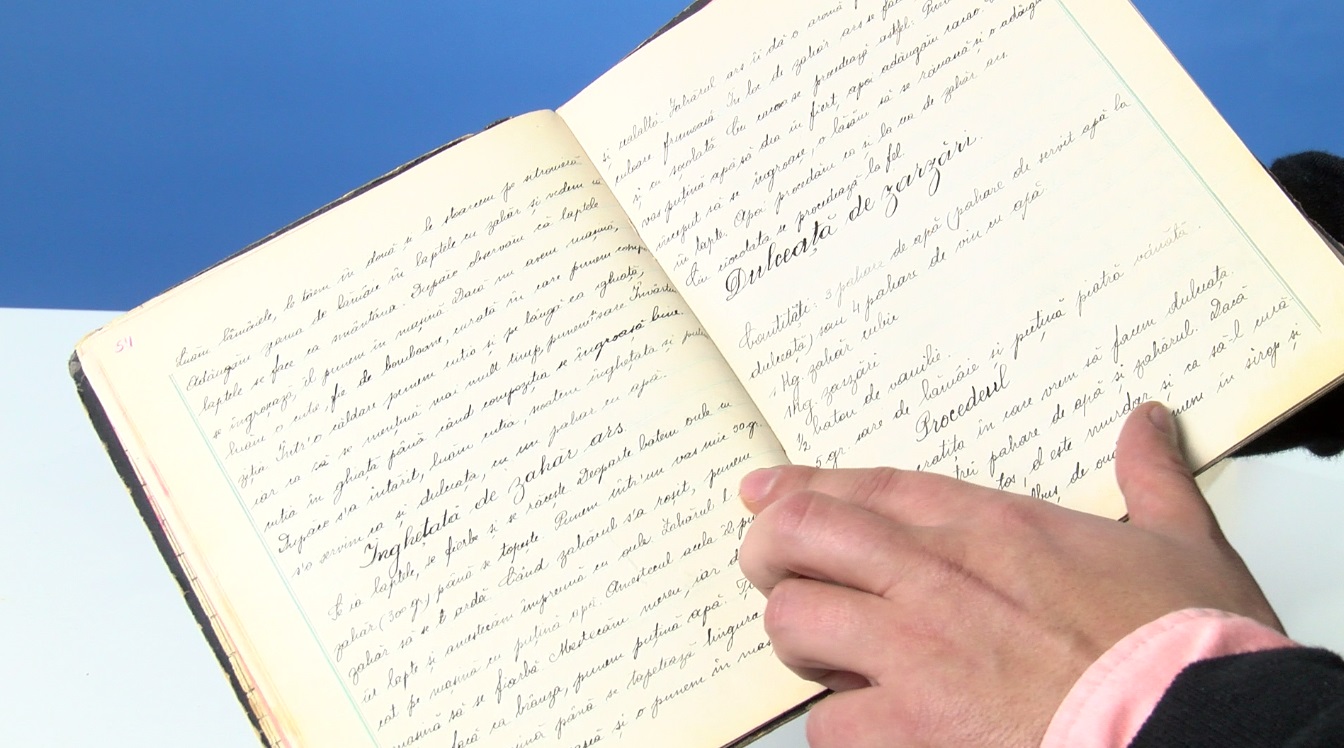 54
Luăm lămâiele, le tăiem în două și le stoarcem pe
Adăugăm zeama de lămâie în laptele cu zahăr și vedem că
laptele se face ca smântâna. După ce observăm că laptele
se îngroașă, îl punem în mașină. Dacă nu avem mașină,
luăm o cutie fie de bomboane, curată în care punem
Într'o căldare punem cutia și pe lângă ea ghiață,
iar ca să se mențină mai mult timp, punem sare. Învârtim
cutia în ghiață până când compoziția se îngroașă bine.
După ce s'a întărit, luăm cutia, scoatem înghețata și
s'o servim ca și dulceața, cu un pahar cu apă.
Înghețată de zahăr ars.
Se ia laptele, se fierbe și se răcește. Deoparte batem ouăle cu
zahăr (300 gr.) până se topește. Punem într'un vas mic 50 gr.
zahăr să se ardă. Când zahărul s'a roșit, punem
lapte și amestecăm împreună cu ouăle. Zahărul
pe mașină cu puțină apă. Amestecul acela îl
mașină să se fiarbă. Mestecăm mereu, iar
facă ca brânza, punem puțină apă.
până se tapetează lingura
și o punem în
și cealaltă. Zahărul ars îi dă o aromă
culoare frumoasă. În loc de zahăr ars se
și cu ciocolată. Cu cacao se procedează astfel:
vas puțină apă să dea în fiert, apoi adăugăm cacao.
început să se îngroașe, o lăsăm să se răcească și o adăugăm
în lapte. Apoi procedăm ca și la cea de zahăr ars.
Cu ciocolata se procedează la fel.
Dulceață de zarzări.
Cantități: 3 pahare de apă (pahare de servit apă la
dulceață) sau 4 pahare de vin cu apă
1 Kg zahăr cubic
1 Kg. zarzări
½ baton de vanilie.
5 gr. sare de lămâie și puțină piatră vânătă.
Procedeul
în care vrem să facem dulceața.
trei pahare de apă și zahărul. Dacă
tos, el este murdar și ca să-l
albuș de ou punem în sirop și